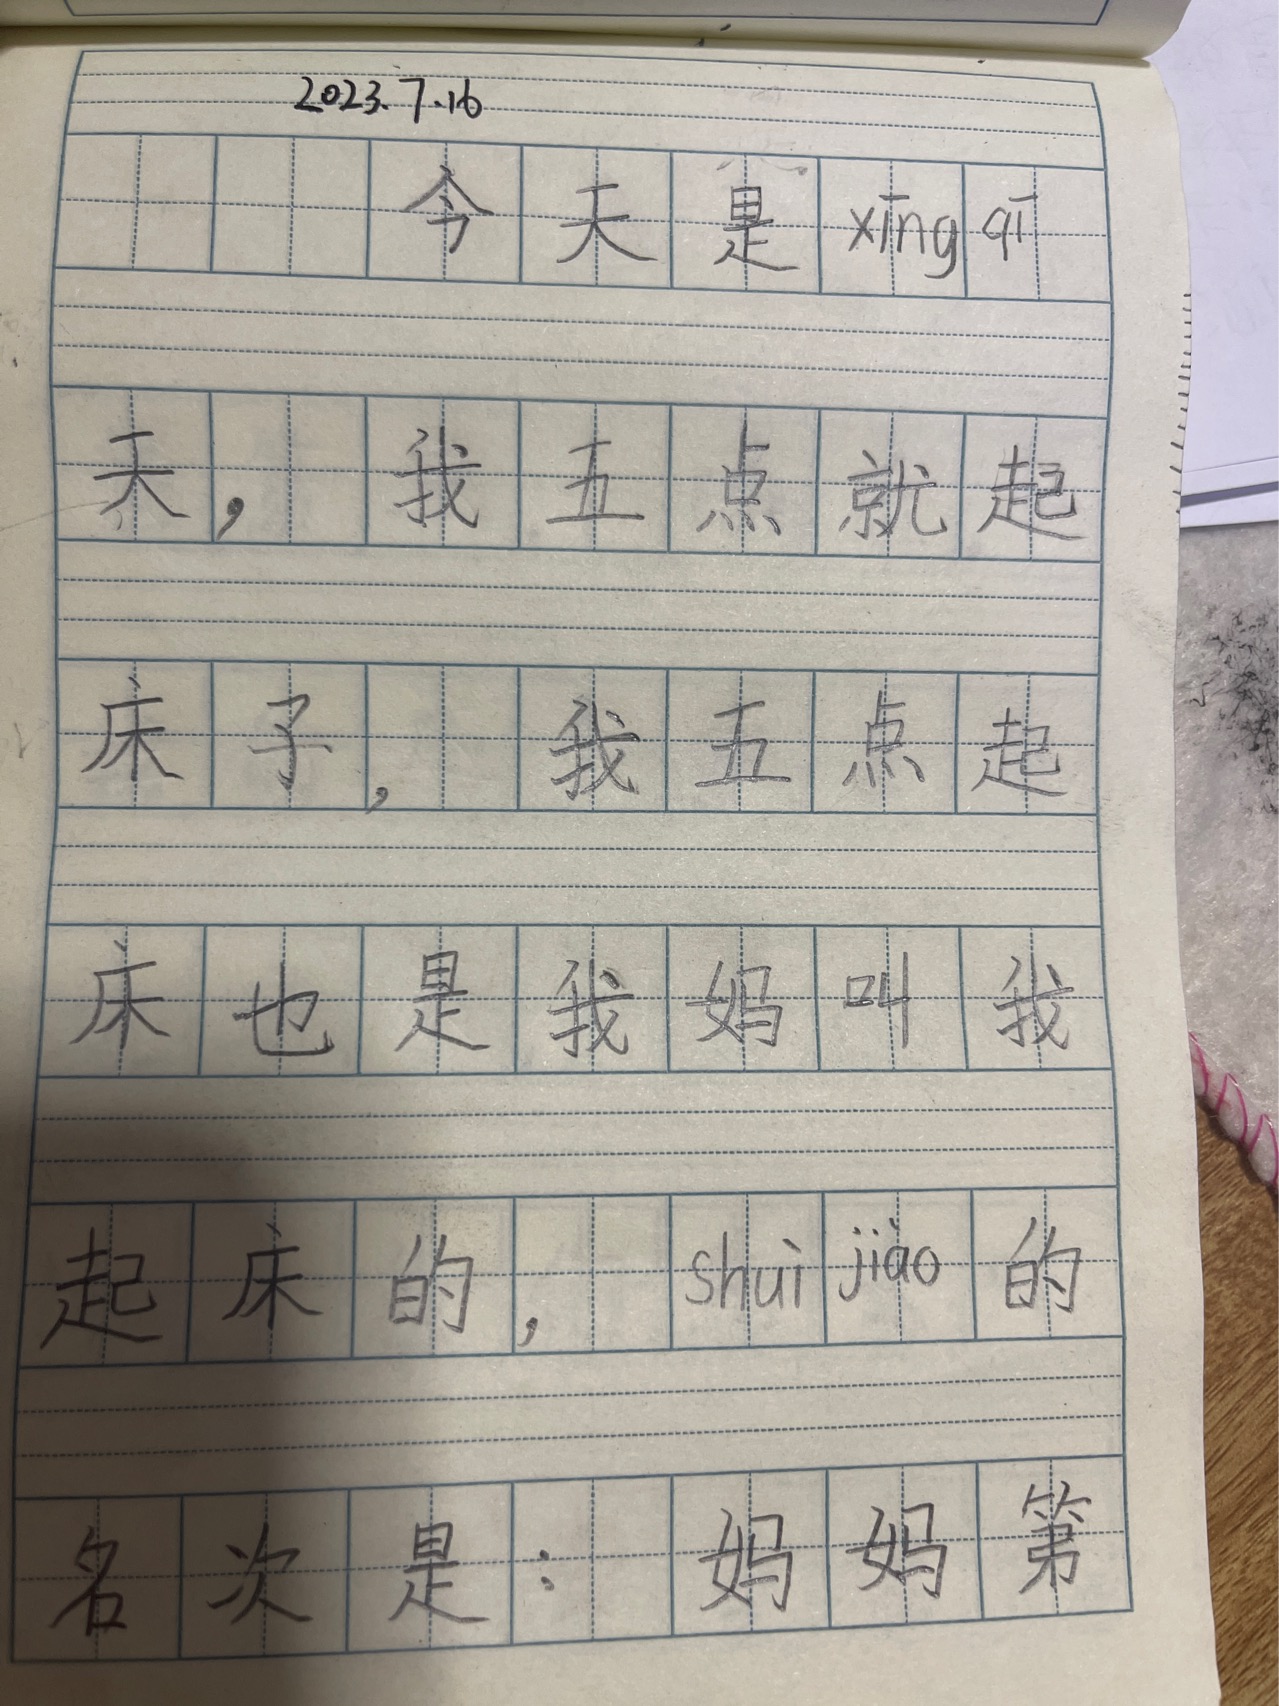 2023.7.16
今天是xīng qī
天，我五点就起
床子，我五点起
床也是我妈叫我
起床的，shuì jiào的
名次是：妈妈第